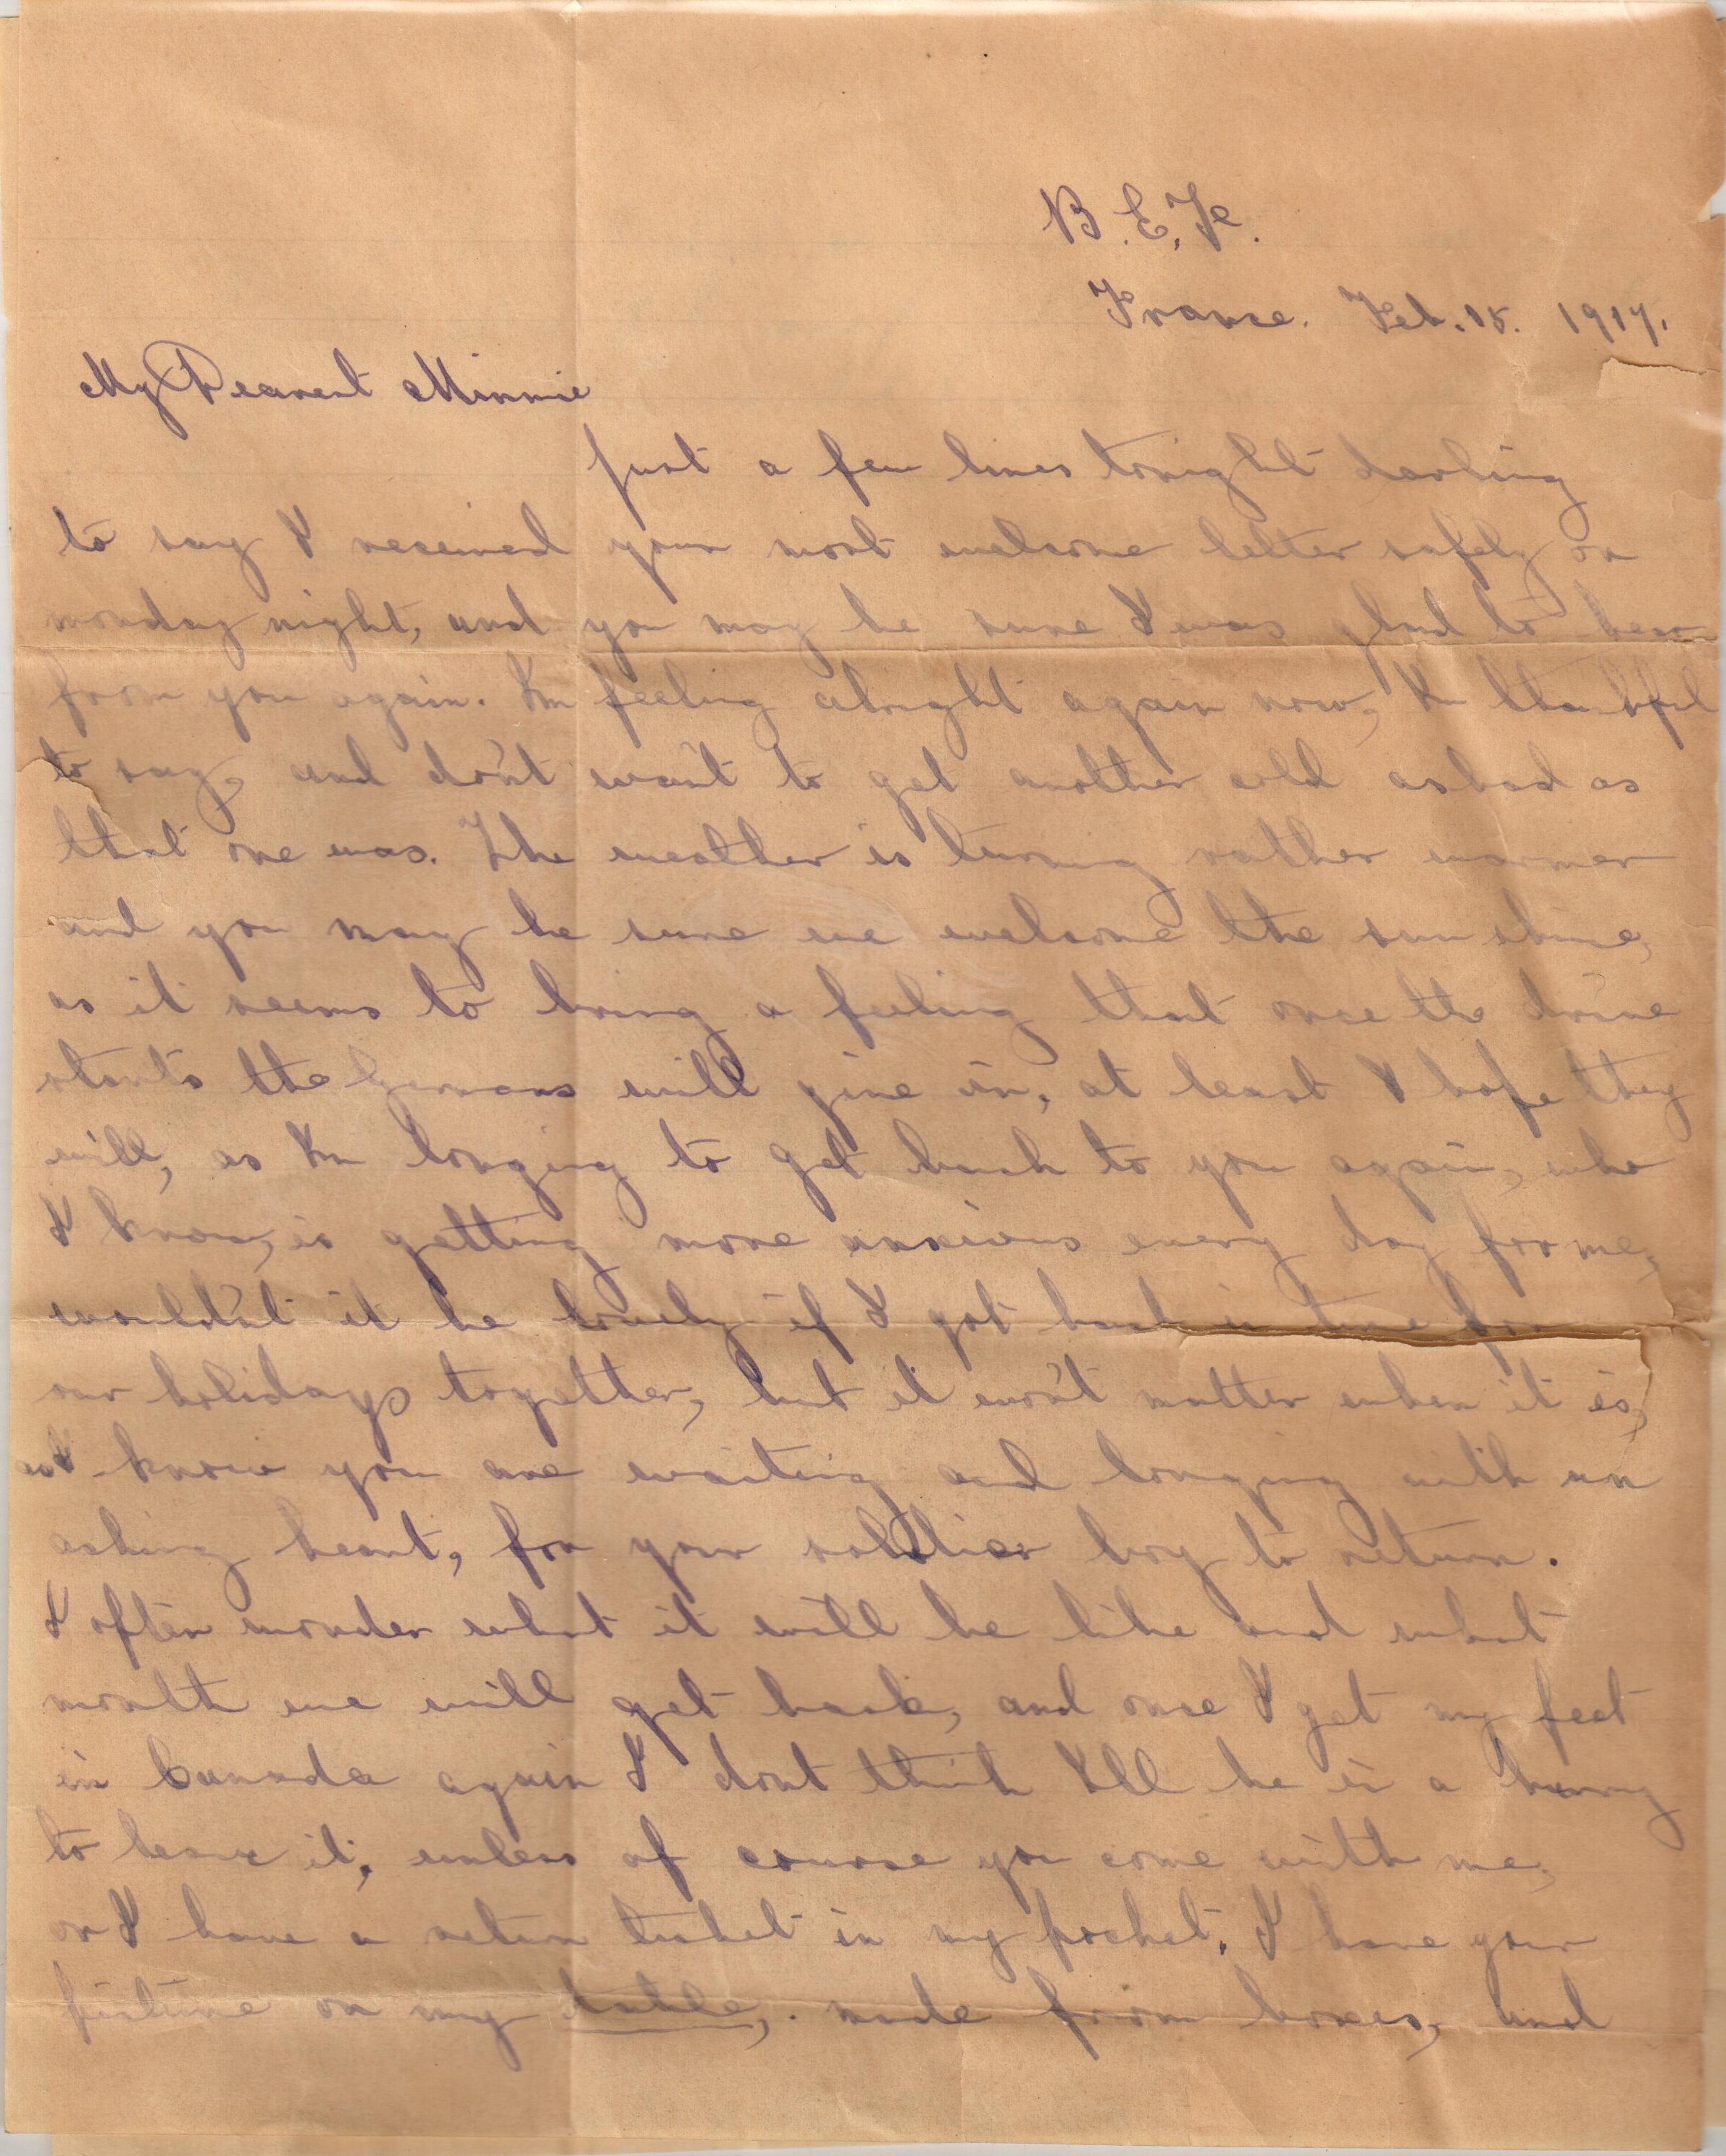 B.E.F.
France. Feb. 15. 1917.
My Dearest Minnie
Just a few lines tonight darling
to say I received your most welcome letter safely on
monday night, and you may be sure I was glad to hear
from you again. Im feeling alright again now, Im thankful
to say, and don't want to get another cold as bad as
that one was. The weather is turning rather warmer
and you may be sure we welcome the sun shine,
as it seems to bring a feeling that once the drive
starts the Germans will give in, at least I hope they
will, as Im longing to get back to you again, who
I know, is getting more anxious every day for me,
wouldn't it be lovely if I got back in time for
our holidays together, but it won't matter when it is,
as I know you are waiting and longing with an
aching heart, for your soldier boy to return.
I often wonder what it will be like and what
month we will get back, and once I get my feet
in Canada again I dont think Ill be in a hurry
to leave it, unless of course you come with me,
or I have a return ticket in my pocket. I have your
picture on my table, made from boxes, and